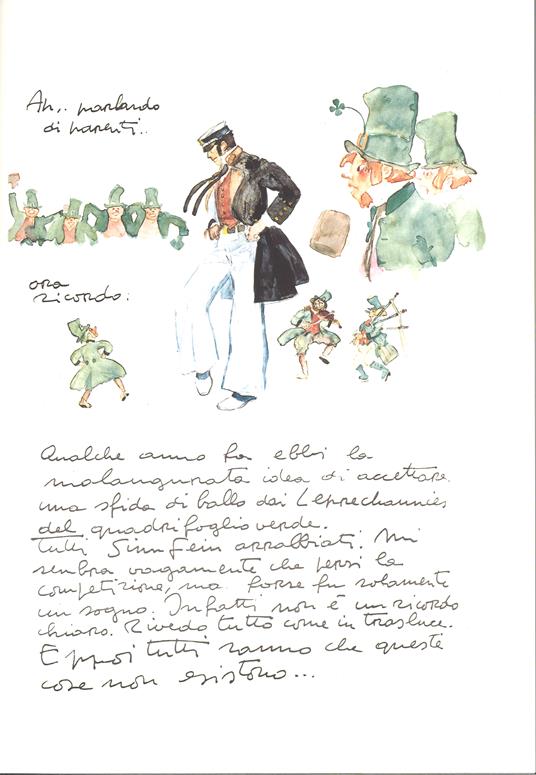 Ah,. parlando
di parenti..
ora
ricordo:
Qualche anno fa ebbi la
malaugurata idea di accettare
una sfida di ballo dai Leprechaunies
del quadrifoglio verde.
tutti Sinnfein arrabbiati. Mi
sembra vagamente che persi la
competizione, ma forse fu solamente
un sogno. Infatti non è un ricordo
chiaro. Rivedo tutto come in trasluce.
E ppoi tutti sanno che queste
cose non esistono...